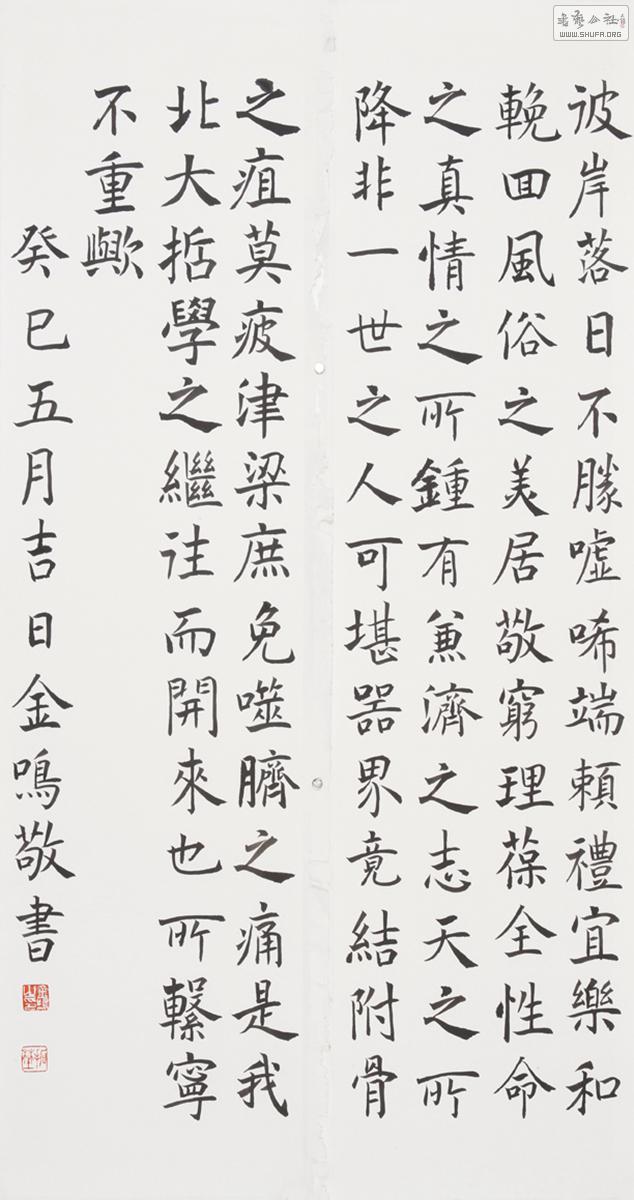 彼岸落日不勝噓唏端賴禮宜樂和
輓回風俗之美居敬窮理葆全性命
之真情之所鍾有兼濟之志天之所
降非一世之人可堪器界竟結附骨
之疽莫疲津梁庶免噬臍之痛是我
北大哲學之繼往而開來也所繫寧
不重歟
癸巳五月吉日金鳴敬書
書藝公社
WWW.SHUFA.ORG